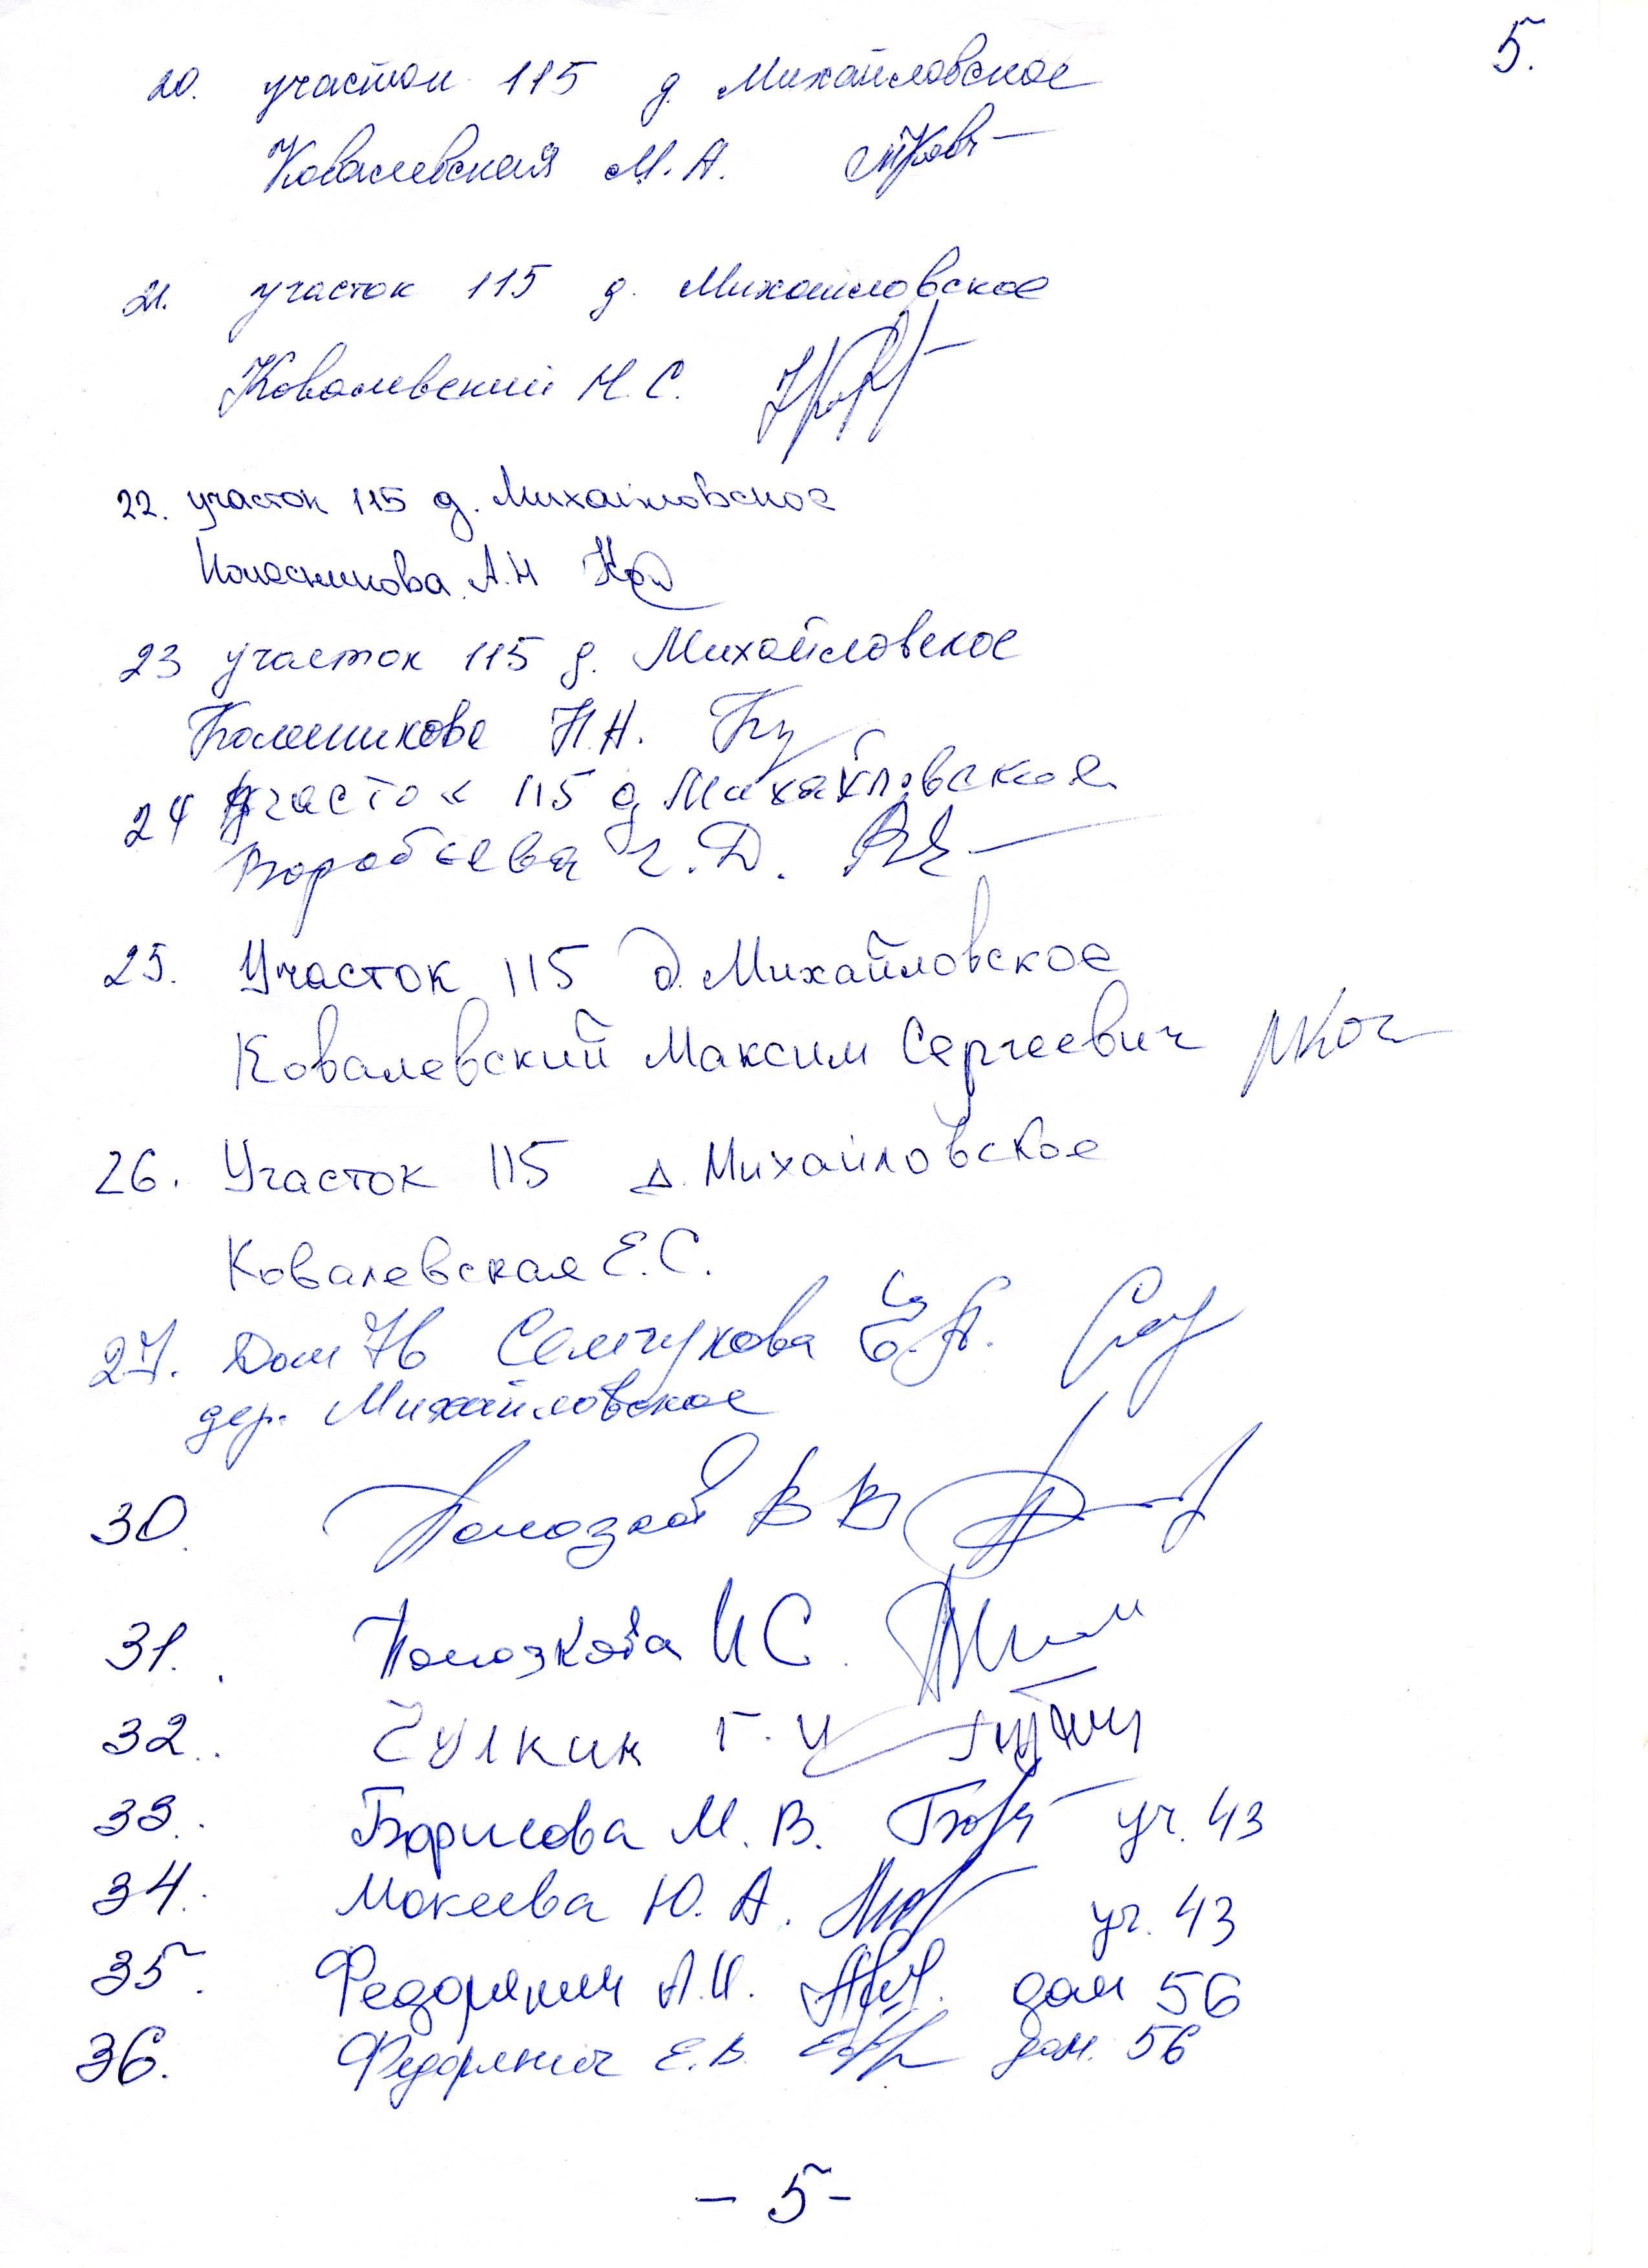 5.
20. участок 115 д. Михайловское
Ковалевская М. А.
21. участок 115 д. Михайловское
Ковалевский Н. С.
22. участок 115 д. Михайловское
Колесникова А.Н
23 участок 115 д. Михайловское
Н.Н.
24 участок 115 д Михайловское
Воробьева Г. Д.
25. Участок 115 д. Михайловское
Ковалевский Максим Сергеевич
26. Участок 115 д. Михайловское
Ковалевская Е. С.
27. Дом Семчукова Е.А.
дер. Михайловское
30. В В
31. Полозкова И С.
32. Чулкин Г. И
33. Борисова М. В. уч. 43
34. Мокеева Ю. А. уч. 43
35. Федорянич А.И. дом 56
36. Федорянич Е. В. дом. 56
- 5 -